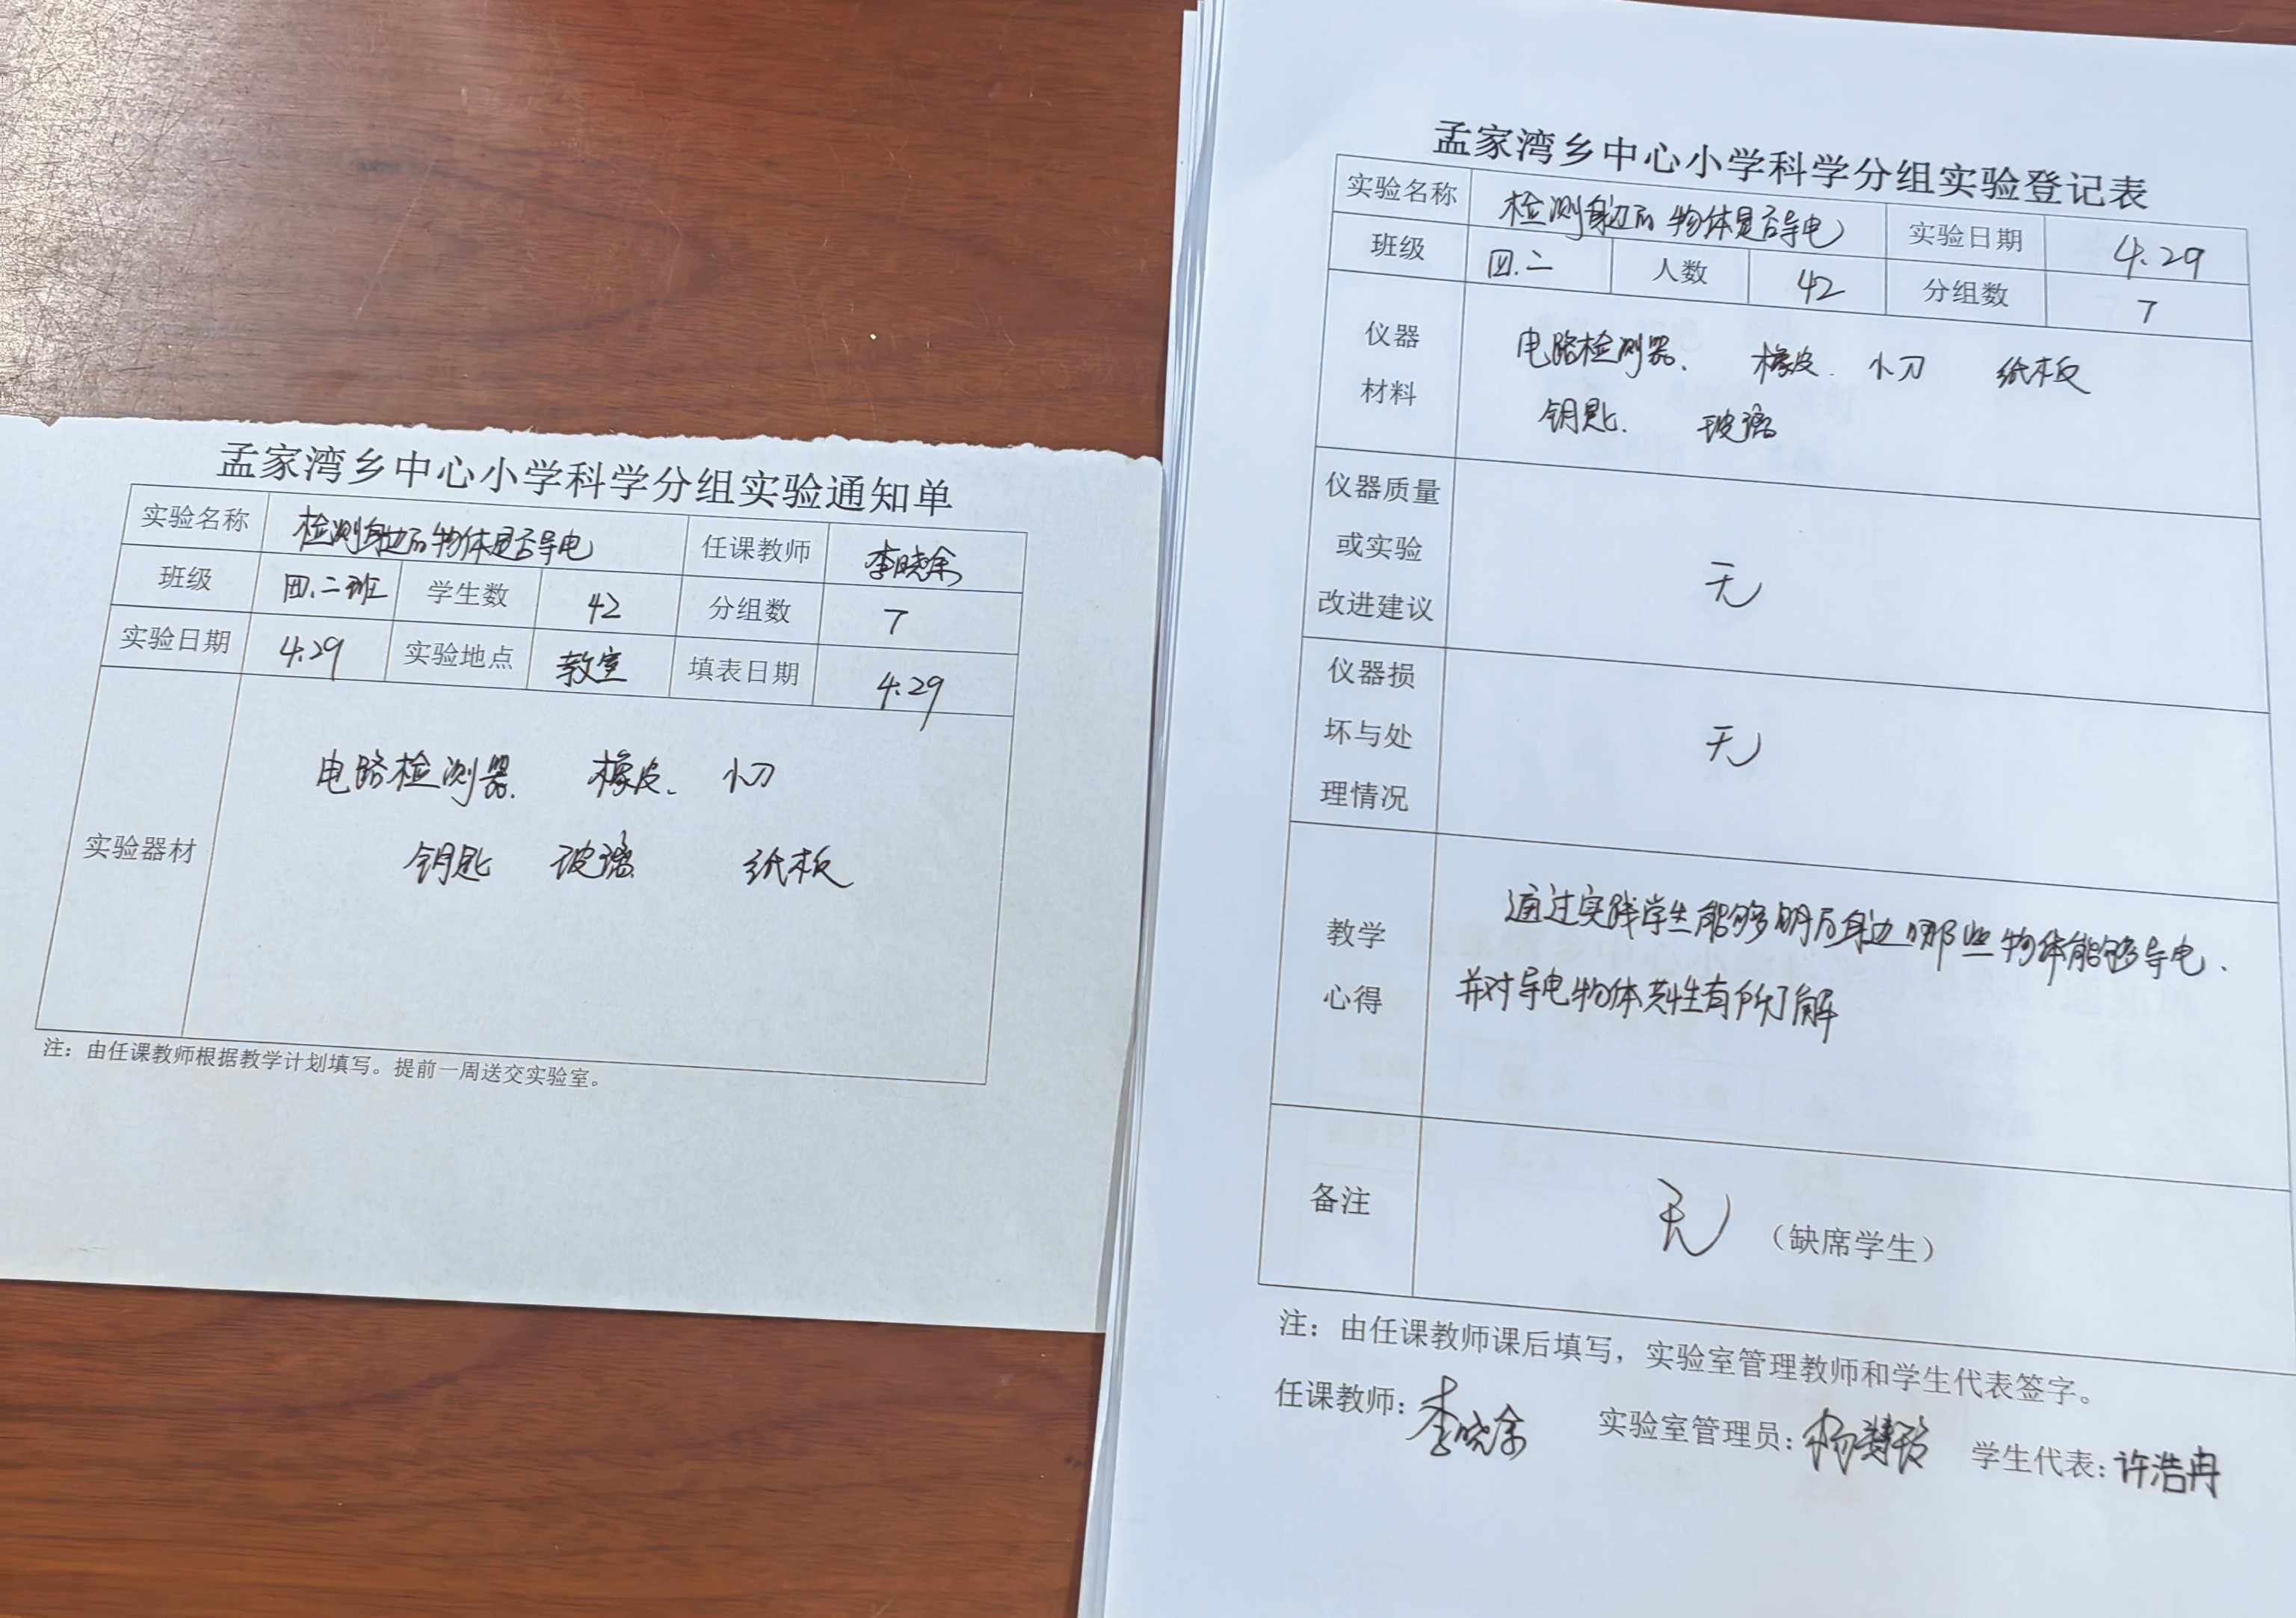 孟家湾乡中心小学科学分组实验通知单
实验名称 检测身边的物体是否导电 任课教师 李晓余
班级 四.二班 学生数 42 分组数 7
实验日期 4.29 实验地点 教室 填表日期 4.29
实验器材
电路检测器、 橡皮、 小刀
钥匙 玻璃 纸板
注：由任课教师根据教学计划填写。提前一周送交实验室。
孟家湾乡中心小学科学分组实验登记表
实验名称 检测身边的物体是否导电 实验日期 4.29
班级 四.二 人数 42 分组数 7
仪器
材料
电路检测器、 橡皮. 小刀 纸板
钥匙. 玻璃
仪器质量
或实验
改进建议
无
仪器损
坏与处
理情况
无
教学
心得
通过实践学生能够明后身边哪些物体能够导电、
并对导电物体共性有所了解
备注 无 （缺席学生）
注：由任课教师课后填写，实验室管理教师和学生代表签字。
任课教师：李晓余 实验室管理员：杨 学生代表：许浩冉